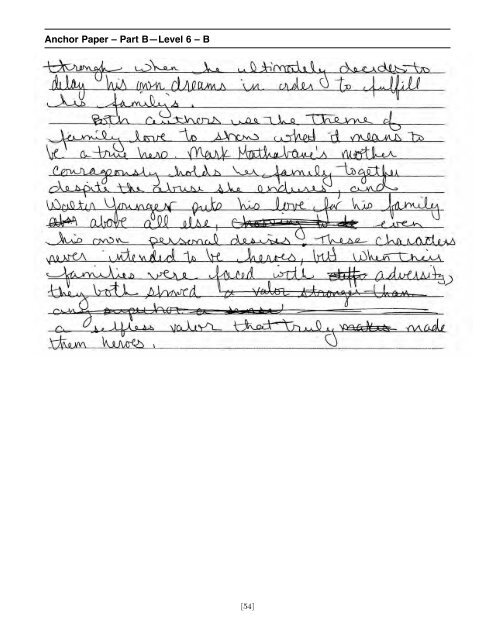 Anchor Paper – Part B—Level 6 – B
through when he ultimately decides to
delay his own dreams in order to fulfill
his family's.
Both authors use the Theme of
family love to show what it means to
be a true hero. Mark Mathabane's mother
courageously holds her family together
despite the abuse she endures, and
Walter Younger puts his love for his family
above all else, even
his own personal desires. These characters
never intended to be heroes, but when their
families were faced with adversity,
they both showed a valor stronger than
and
a selfless valor that truly made
them heroes.
[54]